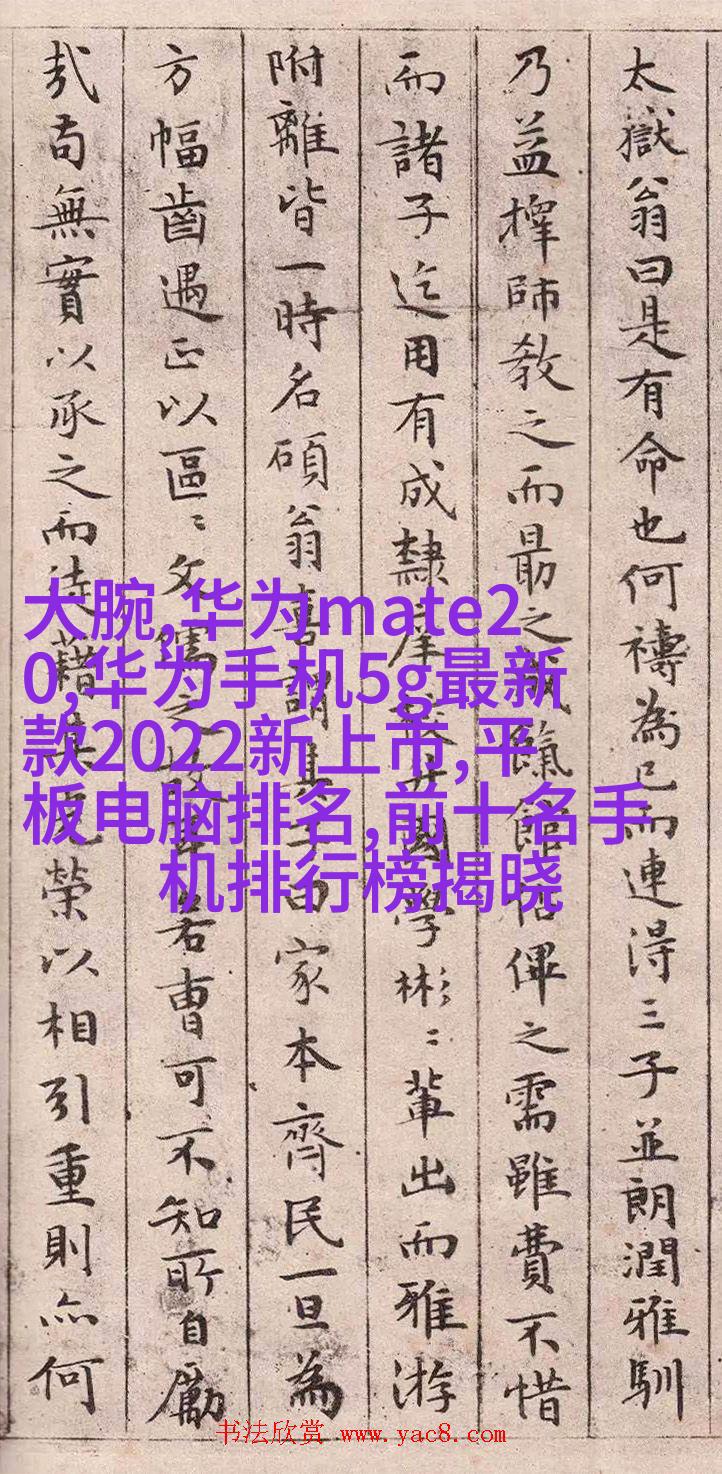 太獄翁曰是有命也何禱為已而連得三子並朗潤雅馴
乃益擇師教之而勗之成餼館佔俾之需雖費不惜
而諸子迄用有成隸庠國學彬〻輩出而雅游
附離皆一時名碩翁喜謂其子曰家本齊民一旦為
方幅齒遇正以區〻文之若曹可不知所自勵
哉苟無實以承之而徒藉榮以相引重則亦何
大腕,华为mate2
0,华为手机5g最新
款2022新上市,平
板电脑排名,前十名手
机排行榜揭晓
书法欣赏 www.yac8.com